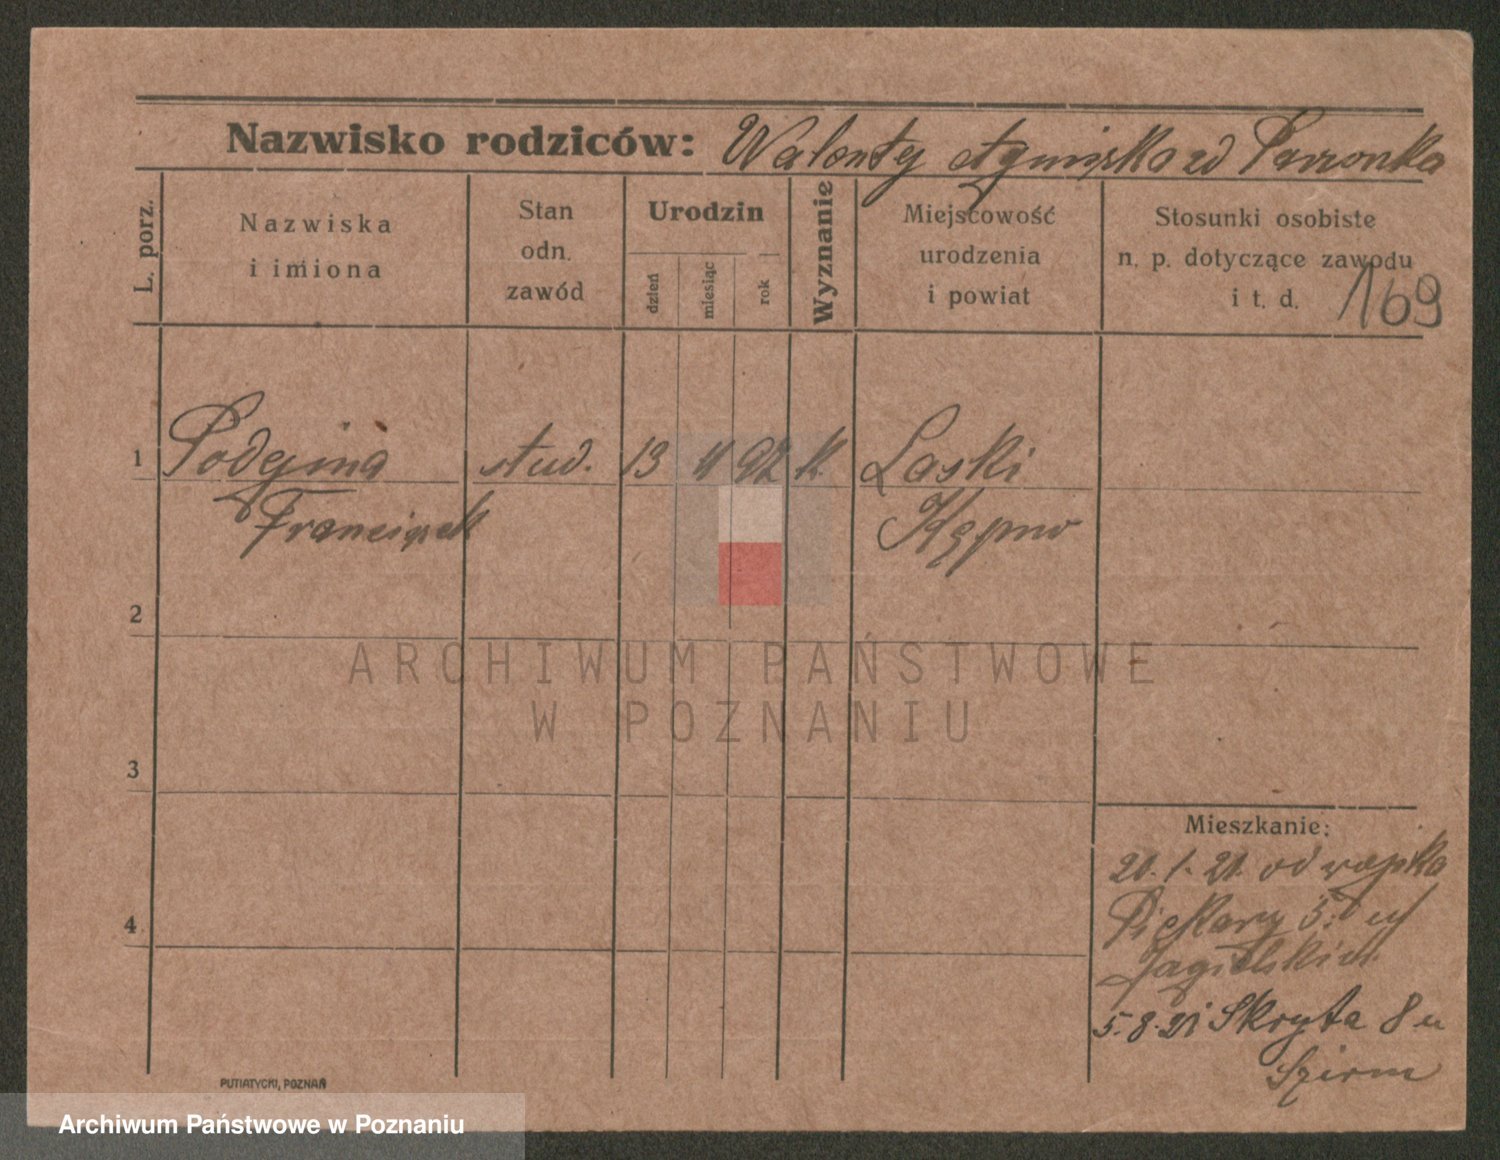 Nazwisko rodziców: Walenty Agnieszka zd
L. porz.
Nazwiska
i imiona
Stan
odn.
zawód
Urodzin
dzień
miesiąc
rok
Wyznanie
Miejscowość
urodzenia
i powiat
Stosunki osobiste
n. p. dotyczące zawodu
i t. d.
169
1 Podejma stud. 13 4 97 k. Laski
Franciszek Kępno
2
3
4
Mieszkanie:
20. 1. 21. od wojska
Piekary 5. u
5.8.21 Skryta 8 u
Szirm
PUTIATYCKI, POZNAŃ
ARCHIWUM PAŃSTWOWE
W POZNANIU
Archiwum Państwowe w Poznaniu